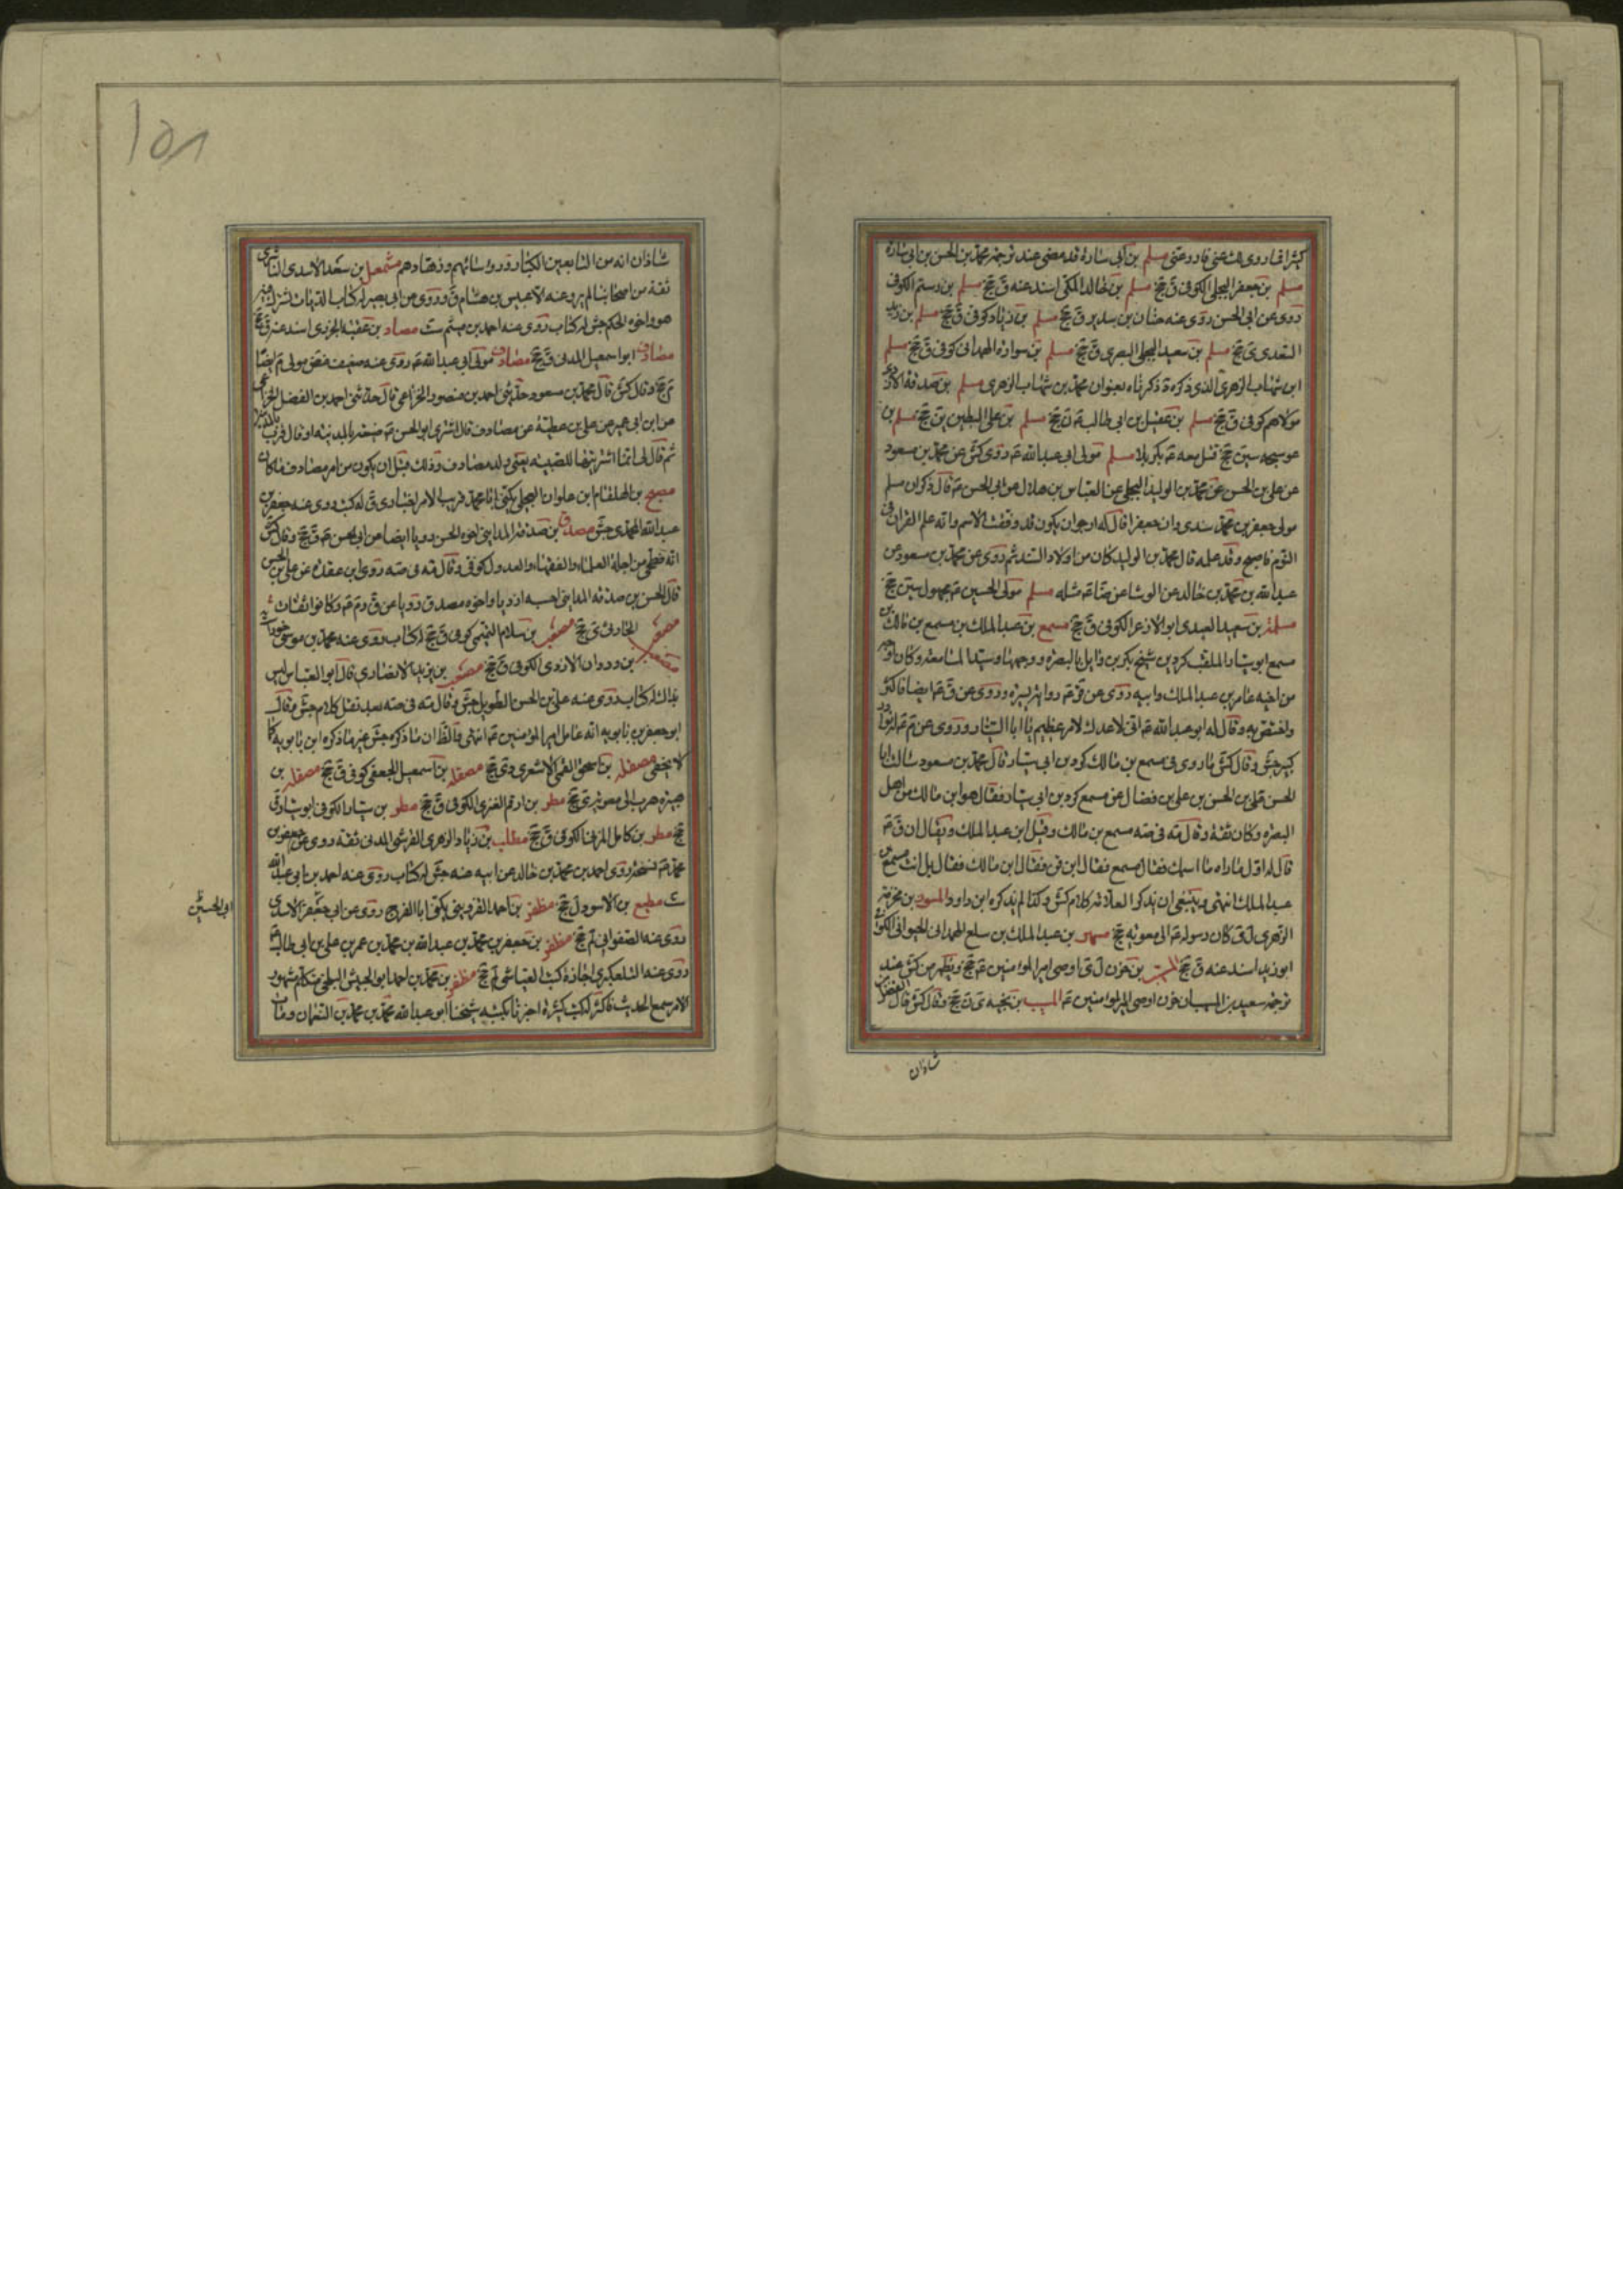 كثيرا ما روى الشعبى مسلم بن ابى سارة قد مضى عند ترجمة محمد بن الحسن بن ابى سارة
مسلم بن جعفر البجلى الكوفى ق جخ مسلم بن خالد المكى اسند عنه ق جخ مسلم بن رستم الكوفى
روى عن ابى الحسن روى عنه حنان بن سدير ق جخ مسلم بن زياد كوفى ق جخ مسلم بن زيد
السعدى ى جخ مسلم بن سعيد البجلى البصرى ق جخ مسلم بن سوادة الهمدانى كوفى ق جخ مسلم
ابن شهاب الزهرى الذى ذكره ة ذكرناه بعنوان محمد بن شهاب الزهرى مسلم بن صدقة الازدى
مولاهم كوفى ق جخ مسلم بن عقيل بن ابى طالب ع ن جخ مسلم بن على البطين ين جخ مسلم بن
عوسجه سين جخ قتل معه ع بكربلا مسلم مولى ابى عبد الله ع روى كش عن محمد بن مسعود
عن على بن الحسن عن محمد بن الوليد البجلى عن العباس بن هلال عن ابى الحسن ع قال ذكر ان مسلم
مولى جعفر بن محمد سندى وان جعفرا قال له ارجو ان يكون قد وفقت الاسم وانه علم القران فى
النوم فاصبح وقد علمه قال محمد بن الوليد كان من اولاد السند ثم روى عن محمد بن مسعود عن
عبد الله بن محمد بن خالد عن الوشا عن ضا ع مثله مسلم مولى الحسين ع مجهول سين جخ
مسلمة بن سعيد العبدى ابو الاذعر الكوفى ق جخ مسمع بن عبد الملك بن مسمع بن مالك بن
مسمع ابو سيار الملقب كردين شيخ بكر بن وايل بالبصرة ووجهها وسيد المسامعة وكان اوجه
من اخيه عامر بن عبد الملك وابيه روى عن قر ع رواية يسيرة وروى عن ق ع ايضا فاكثر
واختص به وقال له ابو عبد الله ع انى لاعدك لامر عظيم يا ابا السيار وروى عن م ع له نوادر
كبير جش وقال كش ما روى فى مسمع بن مالك كردين ابى سيار قال محمد بن مسعود سالت ابا
الحسن على بن الحسن بن على بن فضال عن مسمع كردين ابى سيار فقال هو ابن مالك من اهل
البصرة وكان ثقة وقال مه فى صه مسمع بن مالك وقيل ابن عبد الملك ويقال ان ق ع
قال له اول ما راه ما اسمك فقال مسمع فقال ابن من فقال ابن مالك فقال بل انت مسمع بن
عبد الملك انتهى وينبغى ان يذكر العلامة كلام كش وكذا لم يذكره ابن داود المسور بن مخرمة
الزهرى ل ى كان رسوله ع الى معوية جخ مسهر بن عبد الملك بن سلع الهمدانى الحيوانى الكوفى
ابو زيد اسند عنه ق جخ المسيب بن حزن ل ى اوصى امير المؤمنين ع جخ ويظهر من كش عند
ترجمة سعيد بن المسيب ان حزن اوصى امير المؤمنين ع المسيب بن نجبة ى ن جخ وقال كش قال الفضل بن
شاذان
شاذان انه من التابعين الكبار ورؤسائهم وزهادهم مشمعل بن سعد الاسدى الناشرى
ثقة من اصحابنا لم يرو عنه الا عبيس بن هشام ق وروى عن ابى بصير له كتاب الديات شرك فيه
هو واخوه الحكم جش له كتاب روى عنه احمد بن ميثم ست مصاد بن عقبة الجزرى اسند عنه ق جخ
مصادف ابو اسمعيل المدنى ق جخ مصادف مولى ابى عبد الله ع روى عنه ضعيف مولى م ايضا
جخ وقال كش قال محمد بن مسعود حدثنى احمد بن منصور الخزاعى قال حدثنى احمد بن الفضل الخزاعى
عن ابن ابى عمير عن على بن عطية عن مصادف قال اشترى ابو الحسن ع ضيعة بالمدينة او قال قرب المدينة
ثم قال لى انما اشتريتها للصبية يعنى ولد مصادف وذلك قبل ان يكون من امر مصادف ما كان
مصبح بن الهلقام ابن علوان العجلى يكنى ابا محمد قريب الامر اخبارى ق له كتب روى عنه جعفر بن
عبد الله المحمدى جش مصدق بن صدقة المداينى اخوه الحسن رويا ايضا عن ابى الحسن ع ق جخ وقال كش
انه فطحى من اجلة العلماء والفقهاء والعدول كوفى وقال مه فى صه روى ابن عقدة عن على بن الحسن
قال الحسن بن صدقة المداينى احسبه ازديا واخوه مصدق رويا عن ق وم ع وكانوا ثقات
مصعب الخارفى ى جخ مصعب بن سلام التميمى كوفى ق جخ له كتاب روى عنه محمد بن موسى خوراء
مصعب بن وردان الازدى الكوفى ق جخ مصعب بن يزيد الانصارى قال ابو العباس ليس
بذاك له كتاب روى عنه على بن الحسن الطويل جش وقال مه فى صه بعد نقل كلام جش وقال
ابو جعفر بن بابويه انه عامل امير المؤمنين ع انتهى والظ ان ما ذكره جش غير ما ذكره ابن بابويه كما
لا يخفى مصقلة بن اسحق القمى الاشعرى دى جخ مصقلة بن اسمعيل الجعفى كوفى ق جخ مصقلة بن
هبيرة هرب الى معوية ى جخ مطر بن ارقم العنزى الكوفى ق جخ مطر بن سيار الكوفى ابو سيار ق
جخ مطر بن كامل المزنى الكوفى ق جخ مطلب بن زياد الزهرى القرشى المدنى ثقة روى عن جعفر بن
محمد ع نسخة روى احمد بن محمد بن خالد عن ابيه عنه جش له كتاب روى عنه احمد بن ابى عبد الله
ست مطيع بن الاسود ل جخ مظفر بن احمد القزوينى يكنى ابا الفرج روى عن ابى جعفر الاسدى
ابى الحسين
روى عنه الصفوانى لم جخ مظفر بن جعفر بن محمد بن عبد الله بن محمد بن عمر بن على بن ابى طالب
روى عنه التلعكبرى اجازة كتب العياشى لم جخ مظفر بن محمد بن احمد ابو الجيش البلخى متكلم مشهور
الامر سمع الحديث فاكثر له كتب كثيرة اخبرنا بكتبه شيخنا ابو عبد الله محمد بن محمد بن النعمان ومات
١٥٨